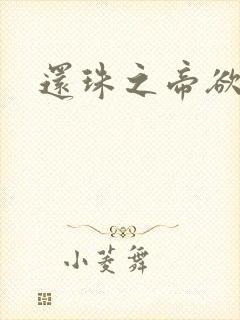 還珠之帝欲
小菱舞